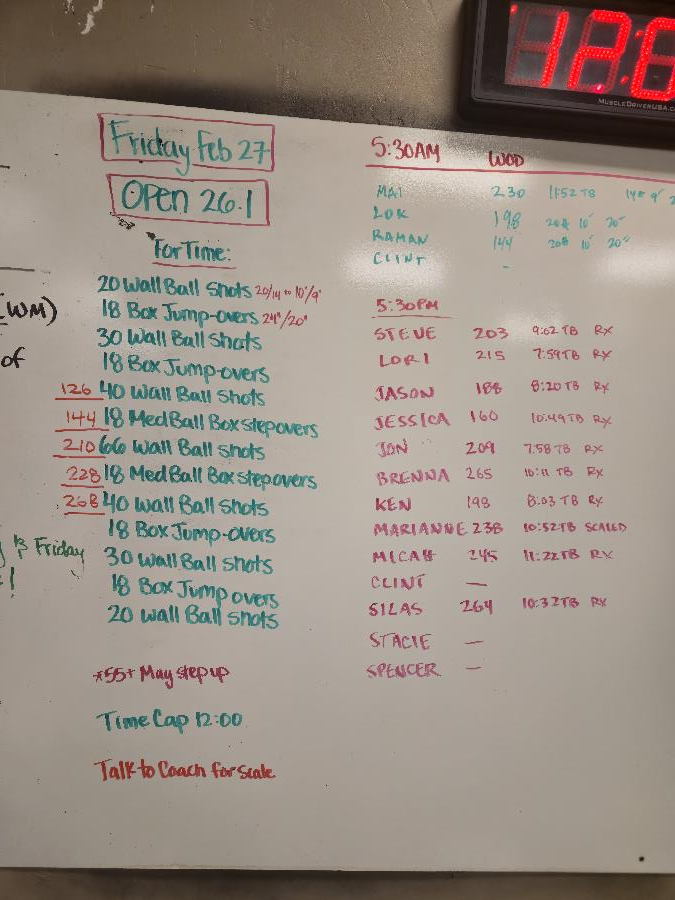 Friday Feb 27
OPEN 26.1
For Time:
20 Wall Ball Shots 20/14 to 10'/9'
18 Box Jump-overs 24"/20"
30 Wall Ball Shots
18 Box Jump-overs
126 40 Wall Ball Shots
144 18 MedBall Box stepovers
210 66 Wall Ball Shots
228 18 MedBall Box stepovers
268 40 Wall Ball Shots
18 Box Jump-overs
30 Wall Ball Shots
18 Box Jump overs
20 Wall Ball Shots
*55+ May step up
Time Cap 12:00
Talk to Coach for scale
WM)
of
Friday
!
5:30AM WOD
MAI 230 11:52 TB 14# 9'
LOK 198 20# 10' 20"
RAMAN 144 20# 10' 20"
CLINT -
5:30PM
STEVE 203 9:02 TB RX
LORI 215 7:59TB RX
JASON 188 8:20TB RX
JESSICA 160 10:49TB RX
JON 209 7:58TB RX
BRENNA 265 10:11 TB RX
KEN 198 8:03 TB RX
MARIANNE 238 10:52TB SCALED
MICAH 245 11:22TB RX
CLINT —
SILAS 264 10:32TB RX
STACIE —
SPENCER —
MUSCLEDRIVERUSA.C